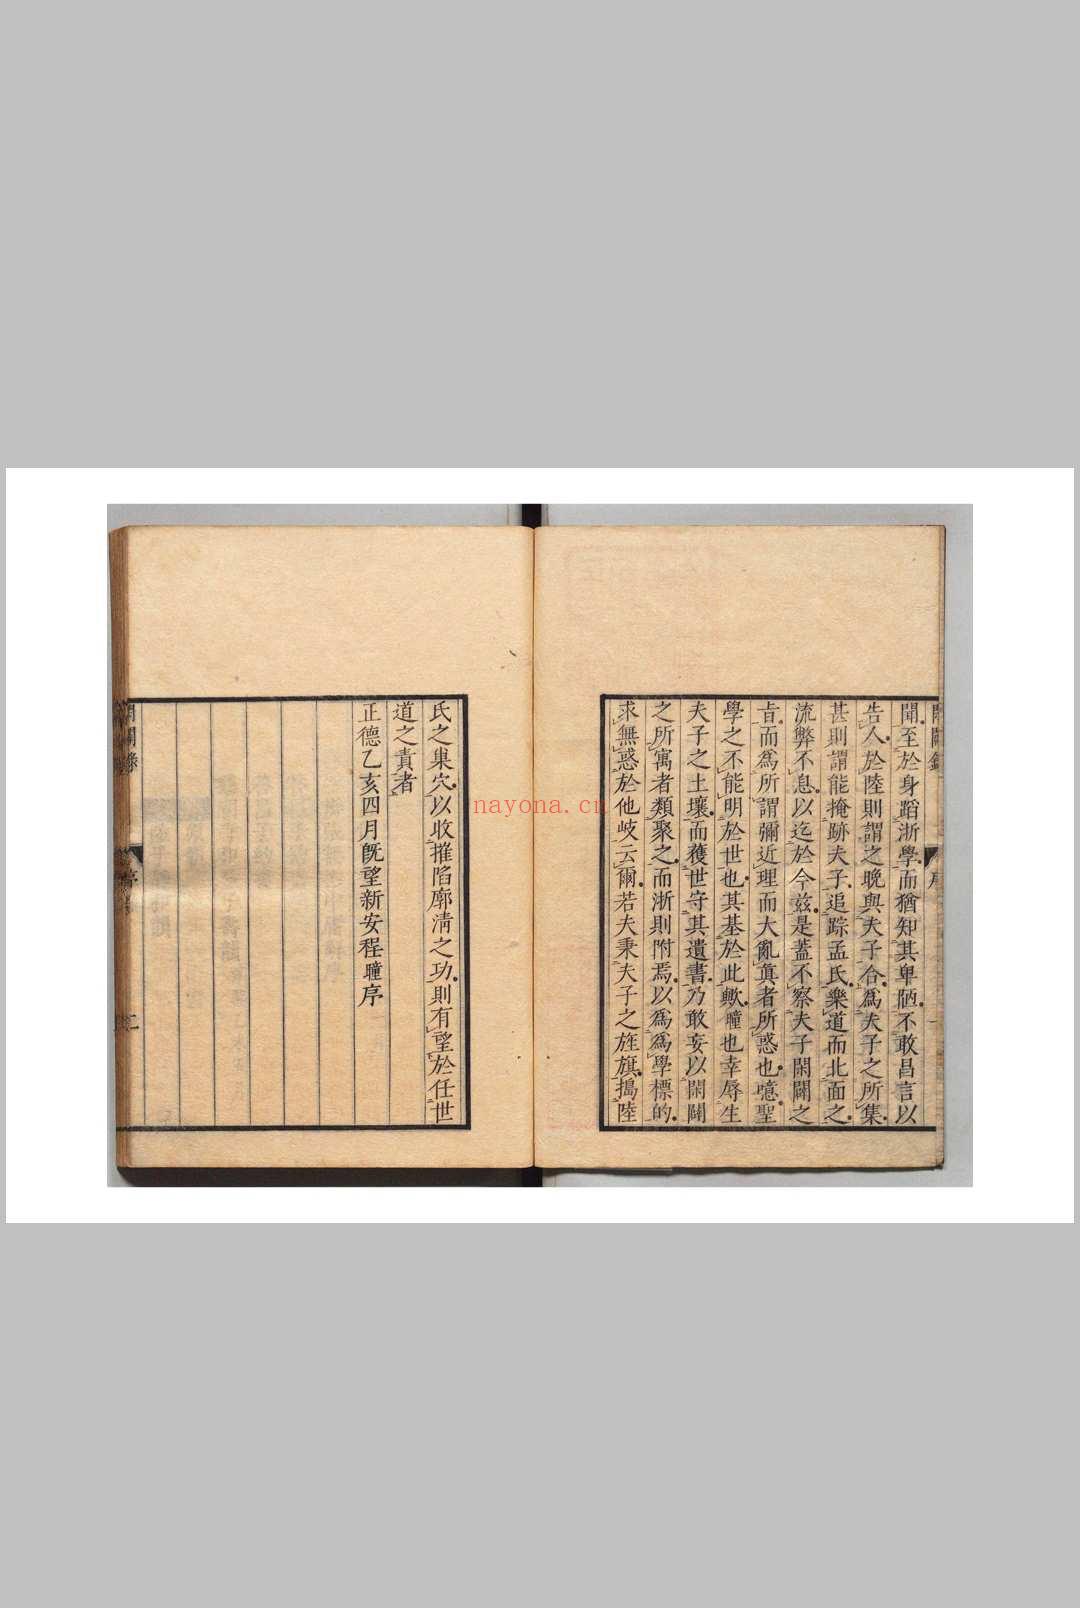 聞至於身蹈浙學而猶知其卑陋不敢昌言以
告人於陸則謂之晚與夫子合爲夫子之所集
甚則謂能掩跡夫子追踪孟氏樂道而北面之
流弊不息以迄於今兹是蓋不察夫子閑闢之
㫖而爲所謂彌近理而大亂眞者所惑也噫聖
學之不能明於世也其基於此歟瞳也幸辱生
夫子之土壤而獲世守其遺書乃敢妄以閑闢
之所寓者類聚之而浙則附焉以爲爲學標的
求無惑於他岐云爾若夫秉夫子之旌旗搗陸
氏之巢穴以收摧陷廓清之功則有望於任世
道之責者
正德乙亥四月旣望新安程瞳序
閑闢錄
序
二
nayona.cn